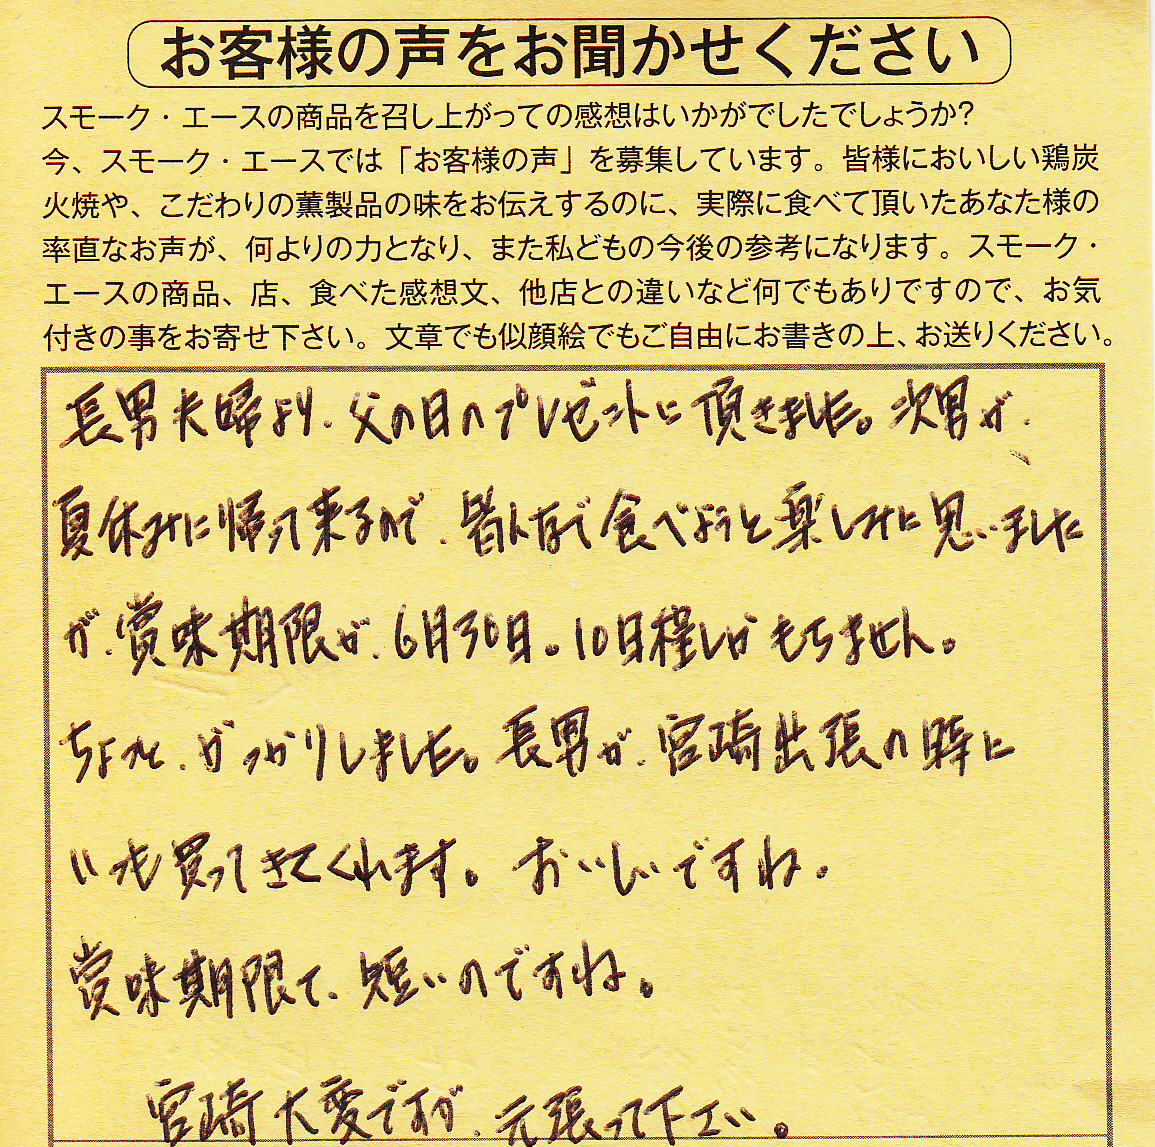 お客様の声をお聞かせください
スモーク・エースの商品を召し上がっての感想はいかがでしたでしょうか?
今、スモーク・エースでは「お客様の声」を募集しています。皆様においしい鶏炭
火焼や、こだわりの薫製品の味をお伝えするのに、実際に食べて頂いたあなた様の
率直なお声が、何よりの力となり、また私どもの今後の参考になります。スモーク・
エースの商品、店、食べた感想文、他店との違いなど何でもありですので、お気
付きの事をお寄せ下さい。文章でも似顔絵でもご自由にお書きの上、お送りください。
長男夫婦より、父の日のプレゼントに頂きました。次男が、
夏休みに帰って来るので、皆んなで食べようと楽しみに思いました
が、賞味期限が、6月30日。10日程しかもちません。
ちょっと、がっかりしました。長男が、宮崎出張の時に
いつも買ってきてくれます。おいしいですね。
賞味期限て、短いのですね。
宮崎大変ですが、元張って下さい。